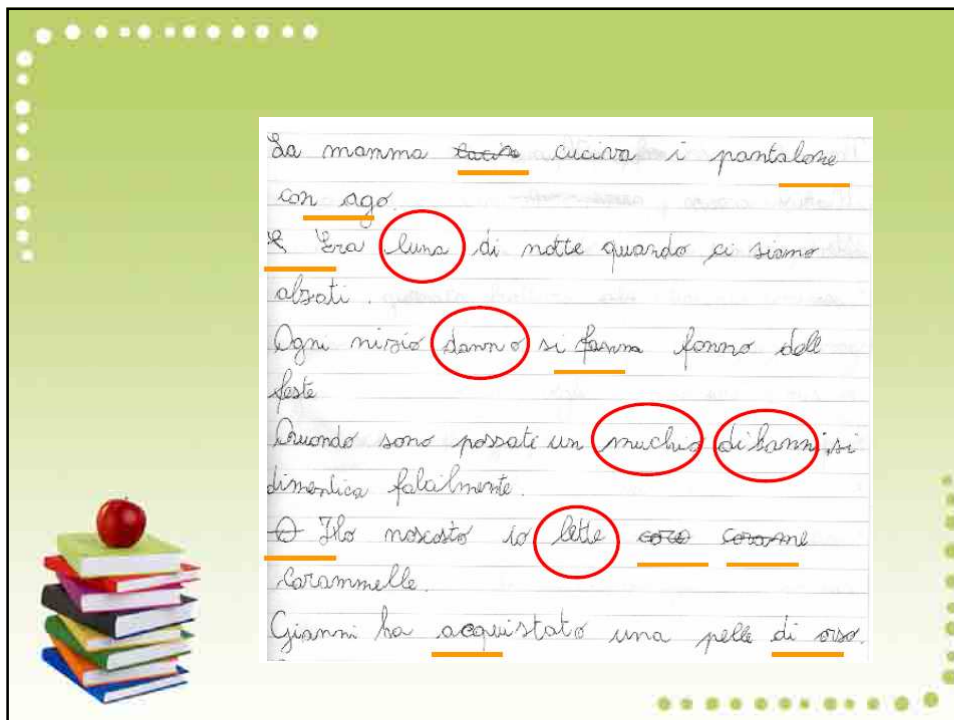 La mamma cuciva i pantalone
con ago.
Era luna di notte quando ci siamo
alzati.
Ogni nizio danno si fanna fanno dell
feste
Quando sono possati un muchio di hanni, si
dimentica falcilmente.
Ilo noscosto io lette
Carammelle.
Gianni ha acquistato una pelle di orso.